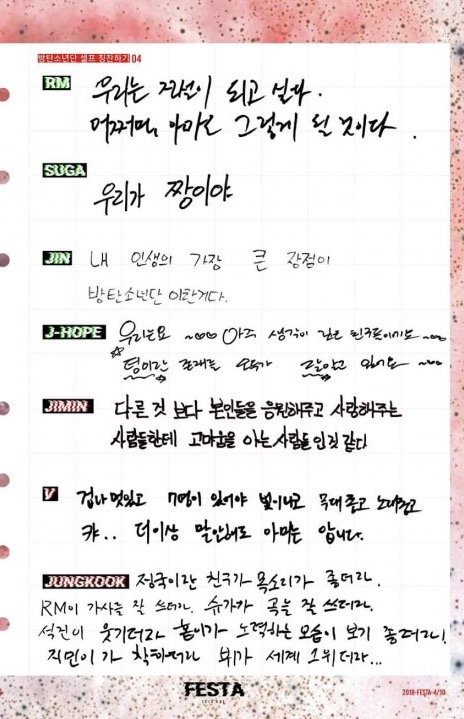 방탄소년단 셀프 칭찬하기 04
RM
우리는 전설이 되고 싶다.
어쩌면, 아마도 그렇게 될 것이다.
SUGA
우리가 짱이야
JIN
내 인생의 가장 큰 장점이
방탄소년단 이란게다.
J-HOPE
우리는요 ~ 아주 생각이 깊은 친구들이기도 ~
팀이란 존재를 모두가 알고 있어요 ~
JIMIN
다른 것 보다 본인들을 응원해주고 사랑해주는
사람들한테 고마움을 아는 사람들인 것 같다
V
겁나 멋있고 7명이 있어야 빛이나고
캬.. 더이상 말 안해도 아미는 압니다.
JUNGKOOK
정국이란 친구가 목소리가 좋더라.
RM이 가사를 잘 쓰더라. 슈가가 곡을 잘 쓰더라.
석진이 웃기더라 홉이가 노력하는 모습이 보기 좋더라!
지민이가 착하더라 뷔가 세계 1위더라...
FESTA
2018 BTS
2018-FESTA-4/10